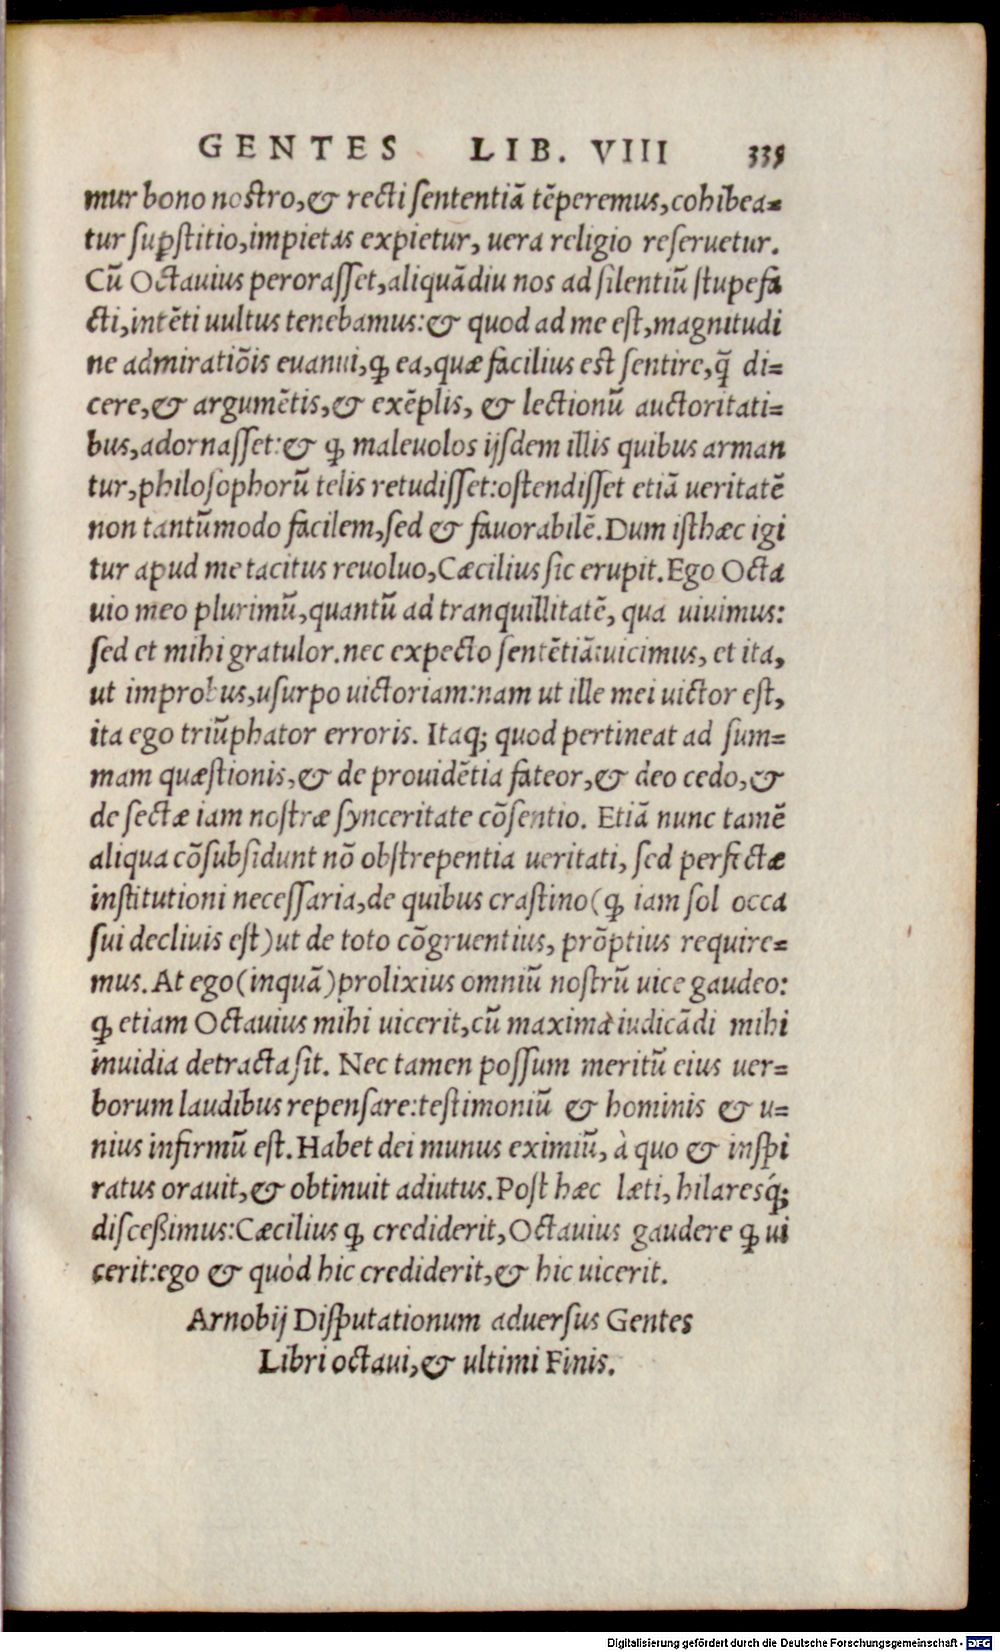 GENTES LIB. VIII 335
mur bono nostro, & recti sententiã tẽperemus, cohibea=
tur sup̱stitio, impietas expietur, uera religio reseruetur.
Cũ Octauius perorasset, aliquãdiu nos ad silentiũ stupefa
cti, intẽti uultus tenebamus: & quod ad me est, magnitudi
ne admiratiõis euanui, ꝙ ea, quæ facilius est sentire, q̃̃ di=
cere, & argumẽtis, & exẽplis, & lectionũ auctoritati=
bus, adornasset: & ꝙ maleuolos ijsdem illis quibus arman
tur, philosophorũ telis retudisset: ostendisset etiã ueritatẽ
non tantũmodo facilem, sed & fauorabilẽ. Dum isthæc igi
tur apud me tacitus reuoluo, Cæcilius sic erupit. Ego Octa
uio meo plurimũ, quantũ ad tranquillitatẽ, qua uiuimus:
sed et mihi gratulor. nec expecto sentẽtiã: uicimus, et ita,
ut improbus, usurpo uictoriam: nam ut ille mei uictor est,
ita ego triũphator erroris. Itaq; quod pertineat ad sum=
mam quæstionis, & de prouidẽtia fateor, & deo cedo, &
de sectæ iam nostræ synceritate cõsentio. Etiã nunc tamẽ
aliqua cõsubsidunt nõ obstrepentia ueritati, sed perfectæ
institutioni necessaria, de quibus crastino (ꝙ iam sol occa
sui decliuis est) ut de toto cõgruentius, prõptius require=
mus. At ego (inquã) prolixius omniũ nostrũ uice gaudeo:
ꝙ etiam Octauius mihi uicerit, cũ maxima iudicãdi mihi
inuidia detracta sit. Nec tamen possum meritũ eius uer=
borum laudibus repensare: testimoniũ & hominis & u=
nius infirmũ est. Habet dei munus eximiũ, à quo & inspi
ratus orauit, & obtinuit adiutus. Post hæc læti, hilaresq́;
disceßimus: Cæcilius ꝙ crediderit, Octauius gaudere ꝙ ui
cerit: ego & quòd hic crediderit, & hic uicerit.
Arnobij Disputationum aduersus Gentes
Libri octaui, & ultimi Finis.
Digitalisierung gefördert durch die Deutsche Forschungsgemeinschaft - DFG